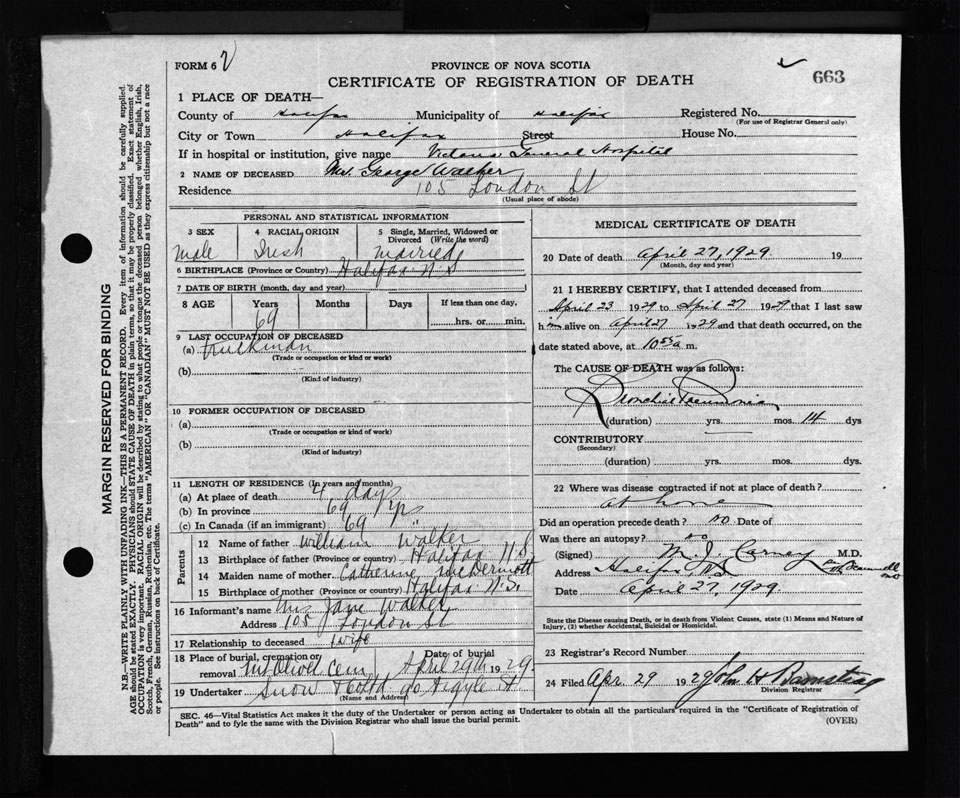 FORM 6
2
PROVINCE OF NOVA SCOTIA
CERTIFICATE OF REGISTRATION OF DEATH
663
1 PLACE OF DEATH—
County of Halifax Municipality of Halifax Registered No.
(For use of Registrar General only)
City or Town Halifax Street House No.
If in hospital or institution, give name Victoria General Hospital
2 NAME OF DECEASED Mr. George Walker
Residence 105 London St
(Usual place of abode)
MARGIN RESERVED FOR BINDING
N.B.—WRITE PLAINLY WITH UNFADING INK—THIS IS A PERMANENT RECORD. Every item of information should be carefully supplied.
AGE should be stated EXACTLY. PHYSICIANS should STATE CAUSE OF DEATH in plain terms, so that it may be properly classified. Exact statement of
OCCUPATION is very important. RACIAL ORIGIN will be described by stating to what people or tongue the deceased person belonged whether English, Irish,
Scotch, French, German, Russian, Ruthenian, etc. The terms "AMERICAN" OR "CANADIAN" MUST NOT BE USED as they express citizenship but not a race
or people. See instructions on back of Certificate.
PERSONAL AND STATISTICAL INFORMATION
3 SEX
Male
4 RACIAL ORIGIN
Irish
5 Single, Married, Widowed or
Divorced (Write the word)
Married
6 BIRTHPLACE (Province or Country) Halifax N.S
7 DATE OF BIRTH (month, day and year)
8 AGE Years Months Days If less than one day,
69 hrs. or min.
9 LAST OCCUPATION OF DECEASED
(a) Truckman
(Trade or occupation or kind or work)
(b)
(Kind of industry)
10 FORMER OCCUPATION OF DECEASED
(a)
(Trade or occupation or kind of work)
(b)
(Kind of industry)
11 LENGTH OF RESIDENCE (In years and months)
(a) At place of death 4 days
(b) In province 69 yrs
(c) In Canada (if an immigrant) 69 "
Parents
12 Name of father William Walker
13 Birthplace of father (Province or Country) Halifax N.S.
14 Maiden name of mother Catherine McDermott
15 Birthplace of mother (Province or Country) Halifax N.S.
16 Informant's name Mrs Jane Walker
Address 105 London St
17 Relationship to deceased wife
18 Place of burial, cremation or Date of burial
removal Mt Olivet Cem April 29th 1929
19 Undertaker Snow & Co Ltd 90 Argyle St
(Name and Address)
MEDICAL CERTIFICATE OF DEATH
20 Date of death April 27, 1929 19
(Month, day and year)
21 I HEREBY CERTIFY, that I attended deceased from
April 23 1929 to April 27 1929 that I last saw
him alive on April 27 1929 and that death occurred, on
date stated above, at 10 55 a m.
The CAUSE OF DEATH was as follows:
Bronchial Pneumonia
(duration) yrs. mos. 14 dys
CONTRIBUTORY
(Secondary)
(duration) yrs. mos. dys.
22 Where was disease contracted if not at place of death?
at home
Did an operation precede death? no Date of
Was there an autopsy? no
(Signed) M. J. Carney M.D.
Address Halifax, N.S.
Date April 27, 1929
State the Disease causing Death, or in death from Violent Causes, state (1) Means and Nature of
Injury, (2) whether Accidental, Suicidal or Homicidal.
23 Registrar's Record Number
24 Filed Apr. 29 1929 John H
Division Registrar
SEC. 46—Vital Statistics Act makes it the duty of the Undertaker or person acting as Undertaker to obtain all the particulars required in the "Certificate of Registration of
Death" and to fyle the same with the Division Registrar who shall issue the burial permit.
(OVER)